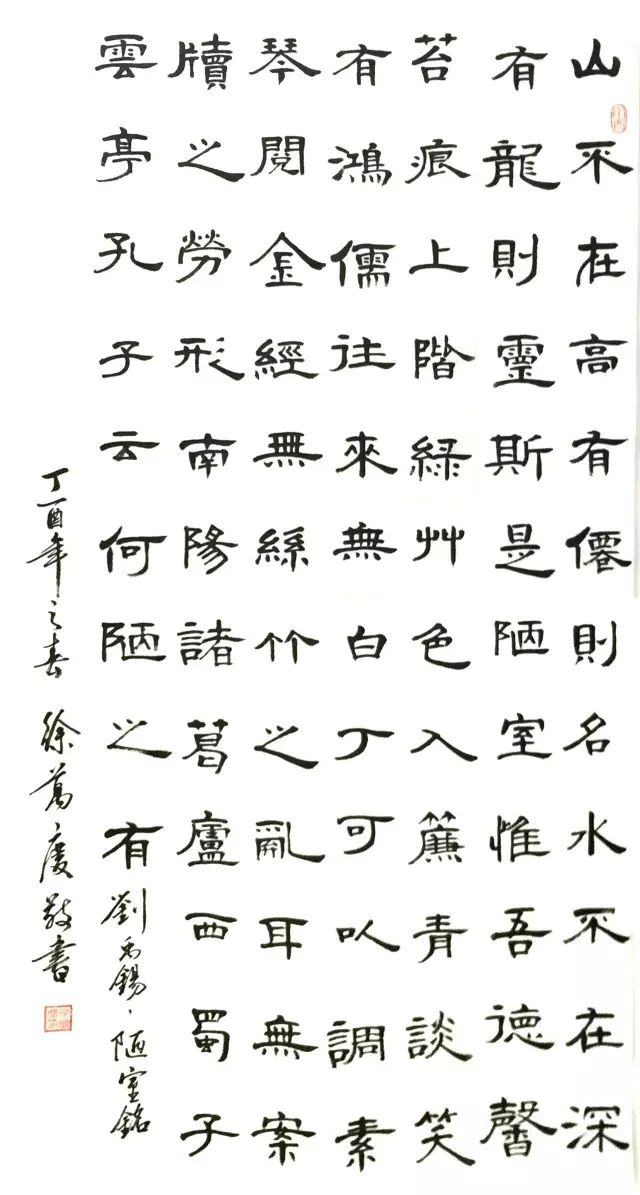 山不在高有僊則名水不在深
有龍則靈斯是陋室惟吾德馨
苔痕上階緑艸色入簾青談笑
有鴻儒往來無白丁可以調素
琴閱金經無絲竹之亂耳無案
牘之勞形南陽諸葛廬西蜀子
雲亭孔子云何陋之有
劉禹錫、陋室銘
丁酉年之春 徐萬慶敬書